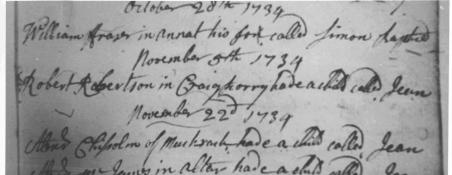 October 28th 1734
William fraser in annat his son called Simon bapted
November 5th 1734
Robert Robertson in Craighorry had e a child called Jean
November 22d 1734
Chisolm of Muckrach had e a child called Jean
James in alter had e a child called